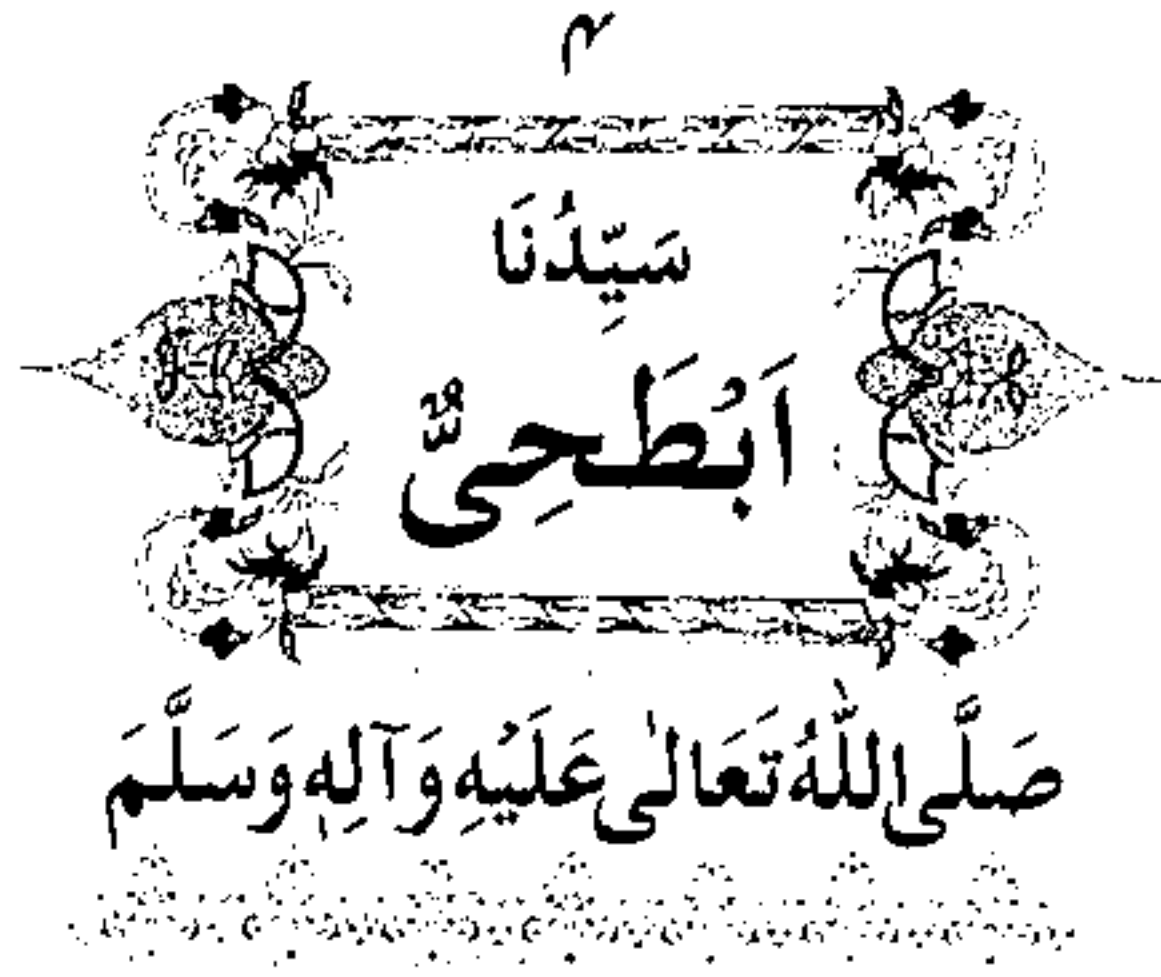 ۴
سَيِّدُنَا
اَبْطَحِیٌّ
صَلَّی اللّٰهُ تَعَالٰی عَلَيْهِ وَآلِهٖ وَسَلَّمَ